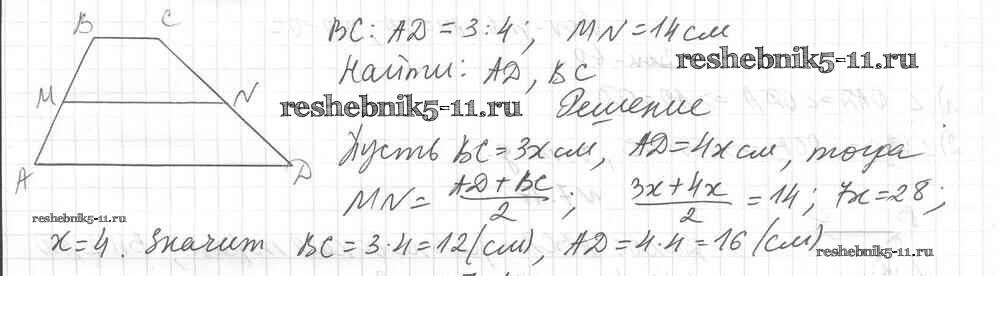 B C
M N
A D
BC : AD = 3 : 4 ; MN = 14 см
Найти: AD, BC
reshebnik5-11.ru
reshebnik5-11.ru
Решение
Пусть BC = 3x см, AD = 4x см, тогда
MN = (AD + BC)/2 ; (3x + 4x)/2 = 14 ; 7x = 28 ;
reshebnik5-11.ru
x = 4. Значит BC = 3·4 = 12 (см), AD = 4·4 = 16 (см)
reshebnik5-11.ru